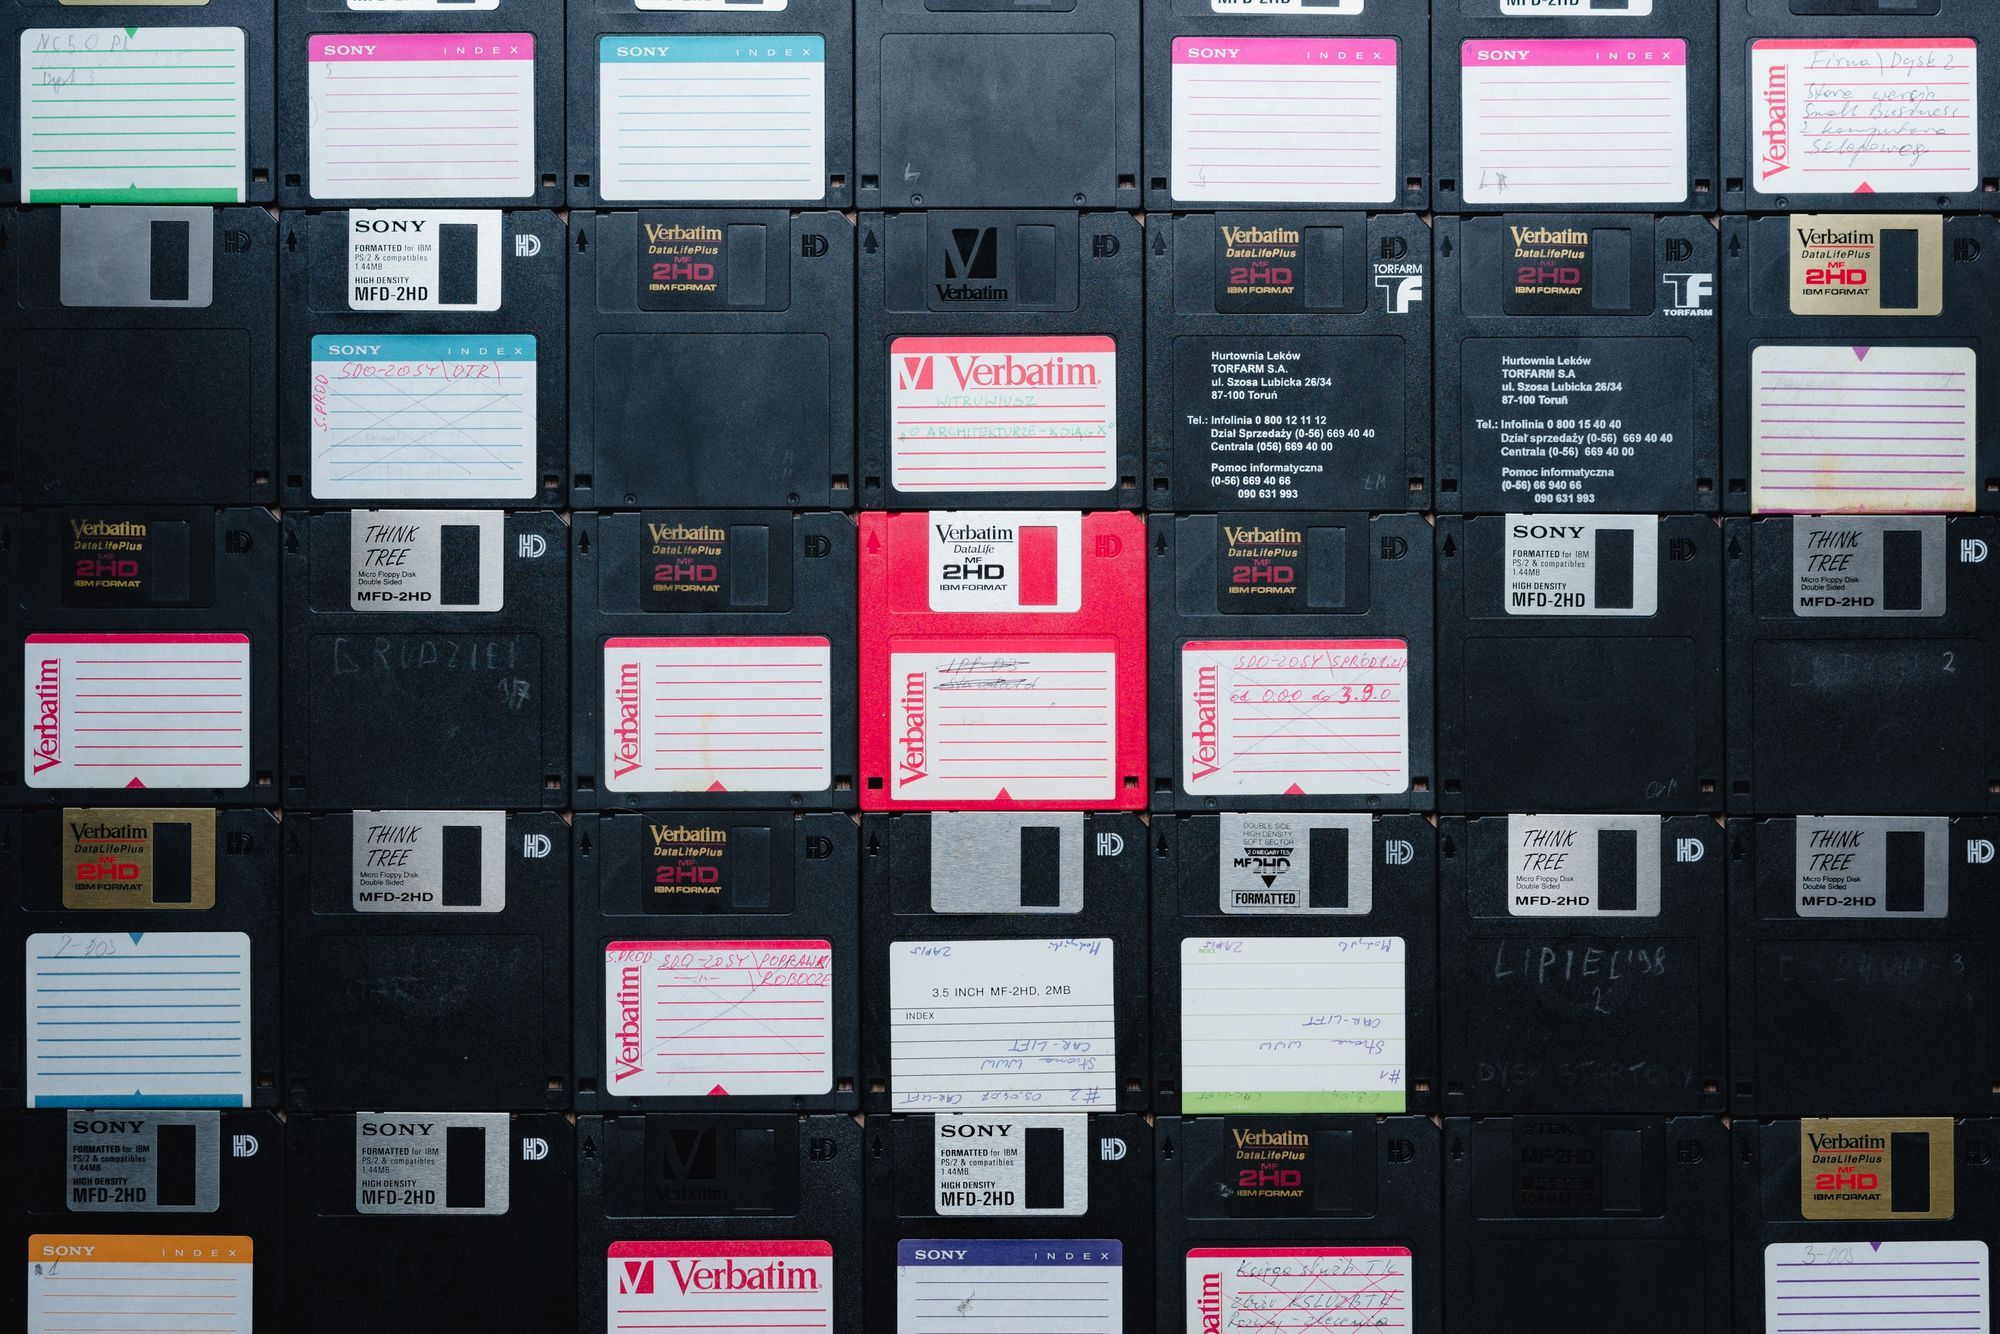 NC50 PL
Dysk 3
SONY INDEX
5
SONY INDEX
4
SONY INDEX
4
SONY INDEX
Verbatim
Firma\Dysk 2
Stara wersja
Small Business
z komputera
sklepowego
SONY
FORMATTED for IBM
PS/2 & compatibles
1.44MB
HIGH DENSITY
MFD-2HD
HD
SONY INDEX
SDO-20SY\DTR\
S.PROD
Verbatim
DataLifePlus
MF
2HD
IBM FORMAT
HD
Verbatim
HD
Verbatim
WITRUWIUSZ
"O ARCHITEKTURZE-KSIĄG X"
Verbatim
DataLifePlus
MF
2HD
IBM FORMAT
HD
TORFARM
TF
Hurtownia Leków
TORFARM S.A.
ul. Szosa Lubicka 26/34
87-100 Toruń
Tel.: Infolinia 0 800 12 11 12
Dział Sprzedaży (0-56) 669 40 40
Centrala (056) 669 40 00
Pomoc informatyczna
(0-56) 669 40 66
090 631 993
Verbatim
DataLifePlus
MF
2HD
IBM FORMAT
HD
TF
TORFARM
Hurtownia Leków
TORFARM S.A
ul. Szosa Lubicka 26/34
87-100 Toruń
Tel.: Infolinia 0 800 15 40 40
Dział sprzedaży (0-56) 669 40 40
Centrala (0-56) 669 40 00
Pomoc informatyczna
(0-56) 66 940 66
090 631 993
Verbatim
DataLifePlus
MF
2HD
IBM FORMAT
HD
Verbatim
DataLifePlus
MF
2HD
IBM FORMAT
HD
Verbatim
THINK
TREE
Micro Floppy Disk
Double Sided
MFD-2HD
HD
GRUDZIEŃ
Verbatim
DataLifePlus
MF
2HD
IBM FORMAT
HD
Verbatim
Verbatim
DataLife
MF
2HD
IBM FORMAT
HD
Verbatim
Verbatim
DataLifePlus
MF
2HD
IBM FORMAT
HD
Verbatim
SDO-20SY\SPROD1.zip
od 0.00 do 3.9.0
SONY
FORMATTED for IBM
PS/2 & compatibles
1.44MB
HIGH DENSITY
MFD-2HD
HD
THINK
TREE
Micro Floppy Disk
Double Sided
MFD-2HD
HD
2
Verbatim
DataLifePlus
MF
2HD
IBM FORMAT
HD
THINK
TREE
Micro Floppy Disk
Double Sided
MFD-2HD
HD
Verbatim
DataLifePlus
MF
2HD
IBM FORMAT
HD
Verbatim
S.PROD SDO-20SY\POPRAWKI
\ROBOCZE
HD
ZAPIS
3.5 INCH MF-2HD, 2MB
INDEX
CAR-LIFT
Strona WWW
#2 03.04.07 CAR-LIFT
DOUBLE SIDE
HIGH DENSITY
SOFT SECTOR
2.0 MEGABYTES
MF2HD
FORMATTED
HD
ZAPIS
INDEX
CAR-LIFT
Strona WWW
#1
THINK
TREE
Micro Floppy Disk
Double Sided
MFD-2HD
HD
LIPIEC '98
2
DYSK STARTOWY
THINK
TREE
Micro Floppy Disk
Double Sided
MFD-2HD
HD
3
SONY
FORMATTED for IBM
PS/2 & compatibles
1.44MB
HIGH DENSITY
MFD-2HD
HD
SONY INDEX
1
SONY
FORMATTED for IBM
PS/2 & compatibles
1.44MB
HIGH DENSITY
MFD-2HD
HD
Verbatim
HD
Verbatim
SONY
FORMATTED for IBM
PS/2 & compatibles
1.44MB
HIGH DENSITY
MFD-2HD
HD
SONY INDEX
Verbatim
DataLifePlus
MF
2HD
IBM FORMAT
HD
Księga służb TK
zbiór KSLUZBTK
TDK
MF-2HD
FORMATTED
HD
Verbatim
DataLifePlus
MF
2HD
IBM FORMAT
3-DOS